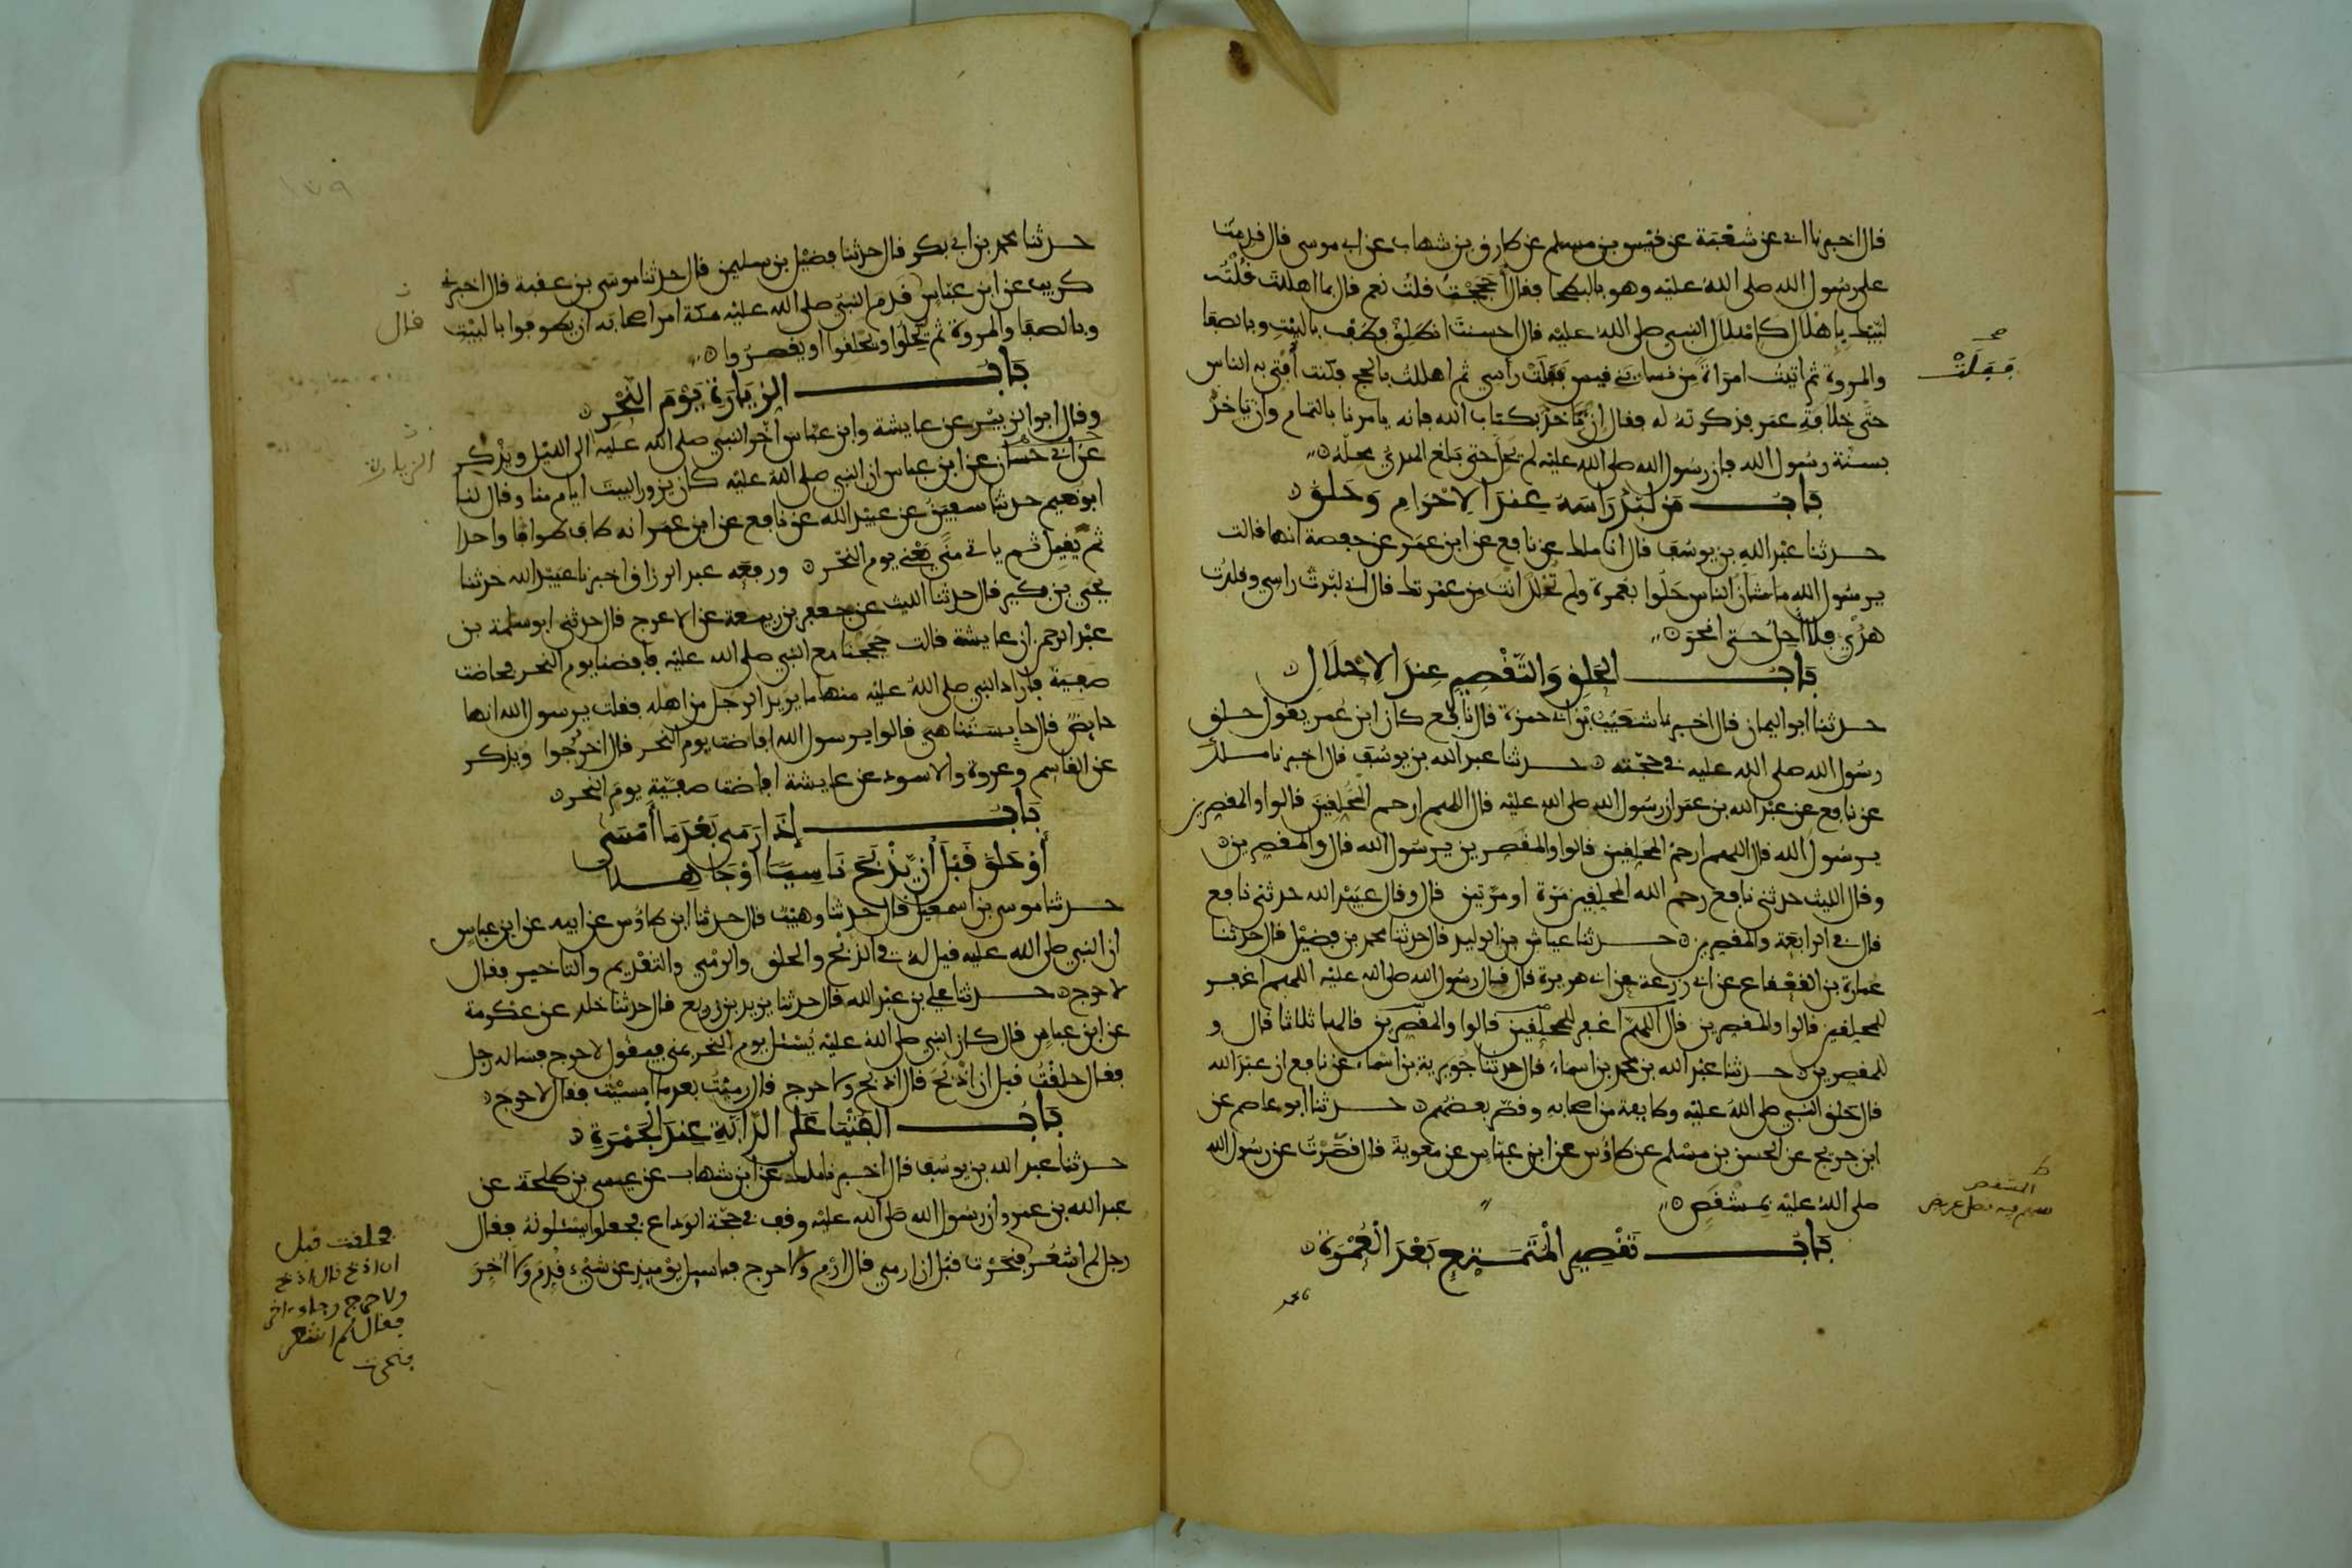 قال اخبرنا ابي عن شعبة عن قيس بن مسلم عن طارق بن شهاب عن ابي موسى قال قدمت
على رسول الله صلى الله عليه وهو بالبطحا فقال أحججت قلت نعم قال بما اهللت قلت
لبيك بإهلال كإهلال النبي صلى الله عليه قال احسنت انطلق فطف بالبيت وبالصفا
والمروة ثم اتيت امراة من نساء بني قيس ففلت رأسي ثم اهللت بالحج فكنت أفتي به الناس
ففلت
حتى خلافة عمر فذكرته له فقال إن نأخذ بكتاب الله فانه يامرنا بالتمام وان ناخذ
بسنة رسول الله فان رسول الله صلى الله عليه لم يحل حتى بلغ الهدي محله
باب من لبد راسه عند الاحرام وحلق
حدثنا عبد الله بن يوسف قال انا ملك عن نافع عن ابن عمر عن حفصة انها قالت
يرسول الله ما شان الناس حلوا بعمرة ولم تحلل انت من عمرتك قال اني لبدت راسي وقلدت
هديي فلا أحل حتى انحر
باب الحلق والتقصير عند الاحلال
حدثنا ابو اليمان قال اخبرنا شعيب بن ابي حمزة قال نافع كان ابن عمر يقول حلق
رسول الله صلى الله عليه في حجته حدثنا عبد الله بن يوسف قال اخبرنا ملك
عن نافع عن عبد الله بن عمر ان رسول الله صلى الله عليه قال اللهم ارحم المحلقين قالوا والمقصرين
يرسول الله قال اللهم ارحم المحلقين قالوا والمقصرين يرسول الله قال والمقصرين
وقال الليث حدثني نافع رحم الله المحلقين مرة او مرتين قال وقال عبيد الله حدثني نافع
قال في الرابعة والمقصرين حدثنا عياش بن الوليد قال حدثنا محمد بن فضيل قال حدثنا
عمارة بن القعقاع عن ابي زرعة عن ابي هريرة قال قال رسول الله صلى الله عليه اللهم اغفر
للمحلقين قالوا وللمقصرين قال اللهم اغفر للمحلقين قالوا وللمقصرين قالها ثلاثا قال و
للمقصرين حدثنا عبد الله بن محمد بن اسماء قال حدثنا جويرية بن اسماء عن نافع ان عبد الله
قال حلق النبي صلى الله عليه وطايفة من اصحابه وقصر بعضهم حدثنا ابو عاصم عن
ابن جريج عن الحسن بن مسلم عن طاؤس عن ابن عباس عن معوية قال قصرت عن رسول الله
صلى الله عليه بمشقص
المشقص
باب تقصير المتمتع بعد العمرة
حدثنا محمد بن ابي بكر قال حدثنا فضيل بن سليمن قال حدثنا موسى بن عقبة قال اخبرني
كريب عن ابن عباس قدم النبي صلى الله عليه مكة امر اصحابه ان يطوفوا بالبيت
قال
وبالصفا والمروة ثم يحلوا ويحلقوا او يقصروا
باب الزيارة يوم النحر
وقال ابو الزبير عن عايشة وابن عباس أخر النبي صلى الله عليه الى الليل ويذكر
الزيارة
عن ابي حسان عن ابن عباس ان النبي صلى الله عليه كان يزور البيت ايام منا وقال لنا
ابو نعيم حدثنا سفين عن عبيد الله عن نافع عن ابن عمر انه طاف طوافا واحدا
ثم يقيل ثم ياتي منى يعني يوم النحر ورفعه عبد الرزاق اخبرنا عبيد الله حدثنا
يحيي بن بكير قال حدثنا الليث عن جعفر بن ربيعة عن الاعرج قال حدثني ابو سلمة بن
عبد الرحمن ان عايشة قالت حججنا مع النبي صلى الله عليه فافضنا يوم النحر فحاضت
صفية فاراد النبي صلى الله عليه منها ما يريد الرجل من اهله فقلت يرسول الله انها
حايض قال حابستنا هي قالوا يرسول الله افاضت يوم النحر قال اخرجوا ويذكر
عن القاسم وعروة والاسود عن عايشة افاضت صفية يوم النحر
باب إذا رمى بعد ما أمسى
أو حلق قبل أن يذبح ناسيا او جاهلا
حدثنا موسى بن اسمعيل قال حدثنا وهيب قال حدثنا ابن طاؤس عن ابيه عن ابن عباس
ان النبي صلى الله عليه قيل له في الذبح والحلق والرمي والتقديم والتاخير فقال
لا حرج حدثنا علي بن عبد الله قال حدثنا يزيد بن زريع قال حدثنا خلد عن عكرمة
عن ابن عباس قال كان النبي صلى الله عليه يسئل يوم النحر بمنى فيقول لا حرج فساله رجل
فقال حلقت قبل ان اذبح قال اذبح ولا حرج قال رميت بعد ما امسيت فقال لا حرج
باب الفتيا على الدابة عند الجمرة
حدثنا عبد الله بن يوسف قال اخبرنا ملك عن ابن شهاب عن عيسى بن طلحة عن
عبد الله بن عمرو ان رسول الله صلى الله عليه وقف في حجة الوداع فجعلوا يسئلونه فقال
رجل لم اشعر فنحرت قبل ان ارمي قال ارم ولا حرج فما سيل يومئذ عن شيء قدم ولا أخر
فحلقت قبل
ان اذبح قال اذبح
ولا حرج وجاء اخر
فقال لم اشعر
فنحرت